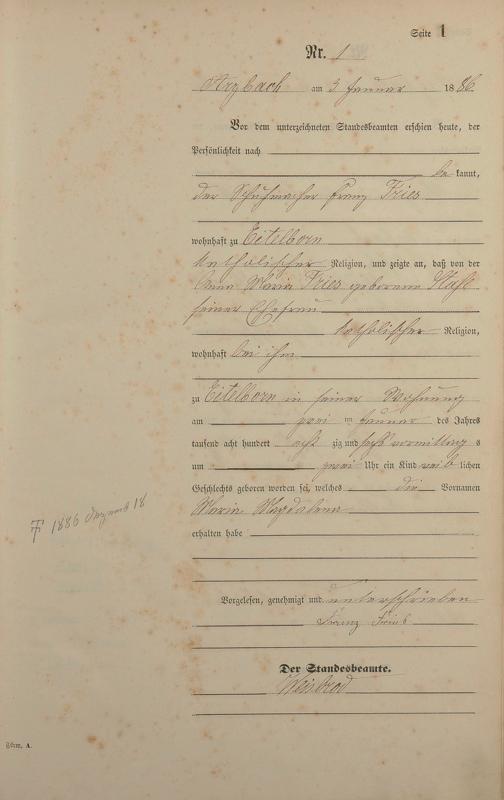 Seite 1
Nr. 1
Arzbach am 3 Januar 1886.
Vor dem unterzeichneten Standesbeamten erschien heute, der
Persönlichkeit nach
be kannt,
der Schuhmacher Franz Fries
wohnhaft zu Eitelborn
katholischer Religion, und zeigte an, daß von der
Anna Maria Fries geborene
seiner Ehefrau
katholischer Religion,
wohnhaft bei ihm
zu Eitelborn in seiner Wohnung
am zwei ten Januar des Jahres
tausend acht hundert acht zig und sechs vormittag s
um zwei Uhr ein Kind weib lichen
Geschlechts geboren worden sei, welches die Vornamen
Maria Magdalena
erhalten habe
Vorgelesen, genehmigt und unterschrieben
Franz Fries
Der Standesbeamte.
Weisbrod
† 1886 Dezemb 18
Form. A.